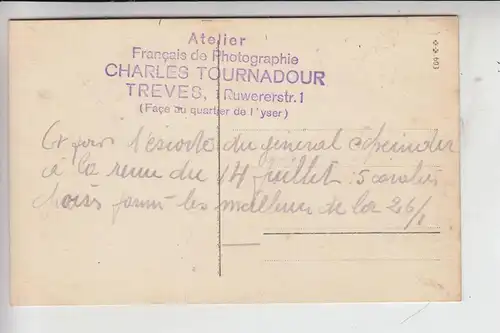 Atelier
Français de Photographie
CHARLES TOURNADOUR
TREVES, Ruwererstr. 1
(Façe au quartier de l'yser)
l'escorte du général
à la revue du 14 juillet : 5 cavaliers
choisis parmi les meilleurs de la 26/